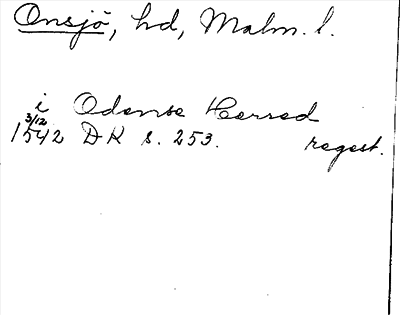 Onsjö, hd, Malm. l.
i Odense Herred
3/12
1542 DK s. 253. regest.